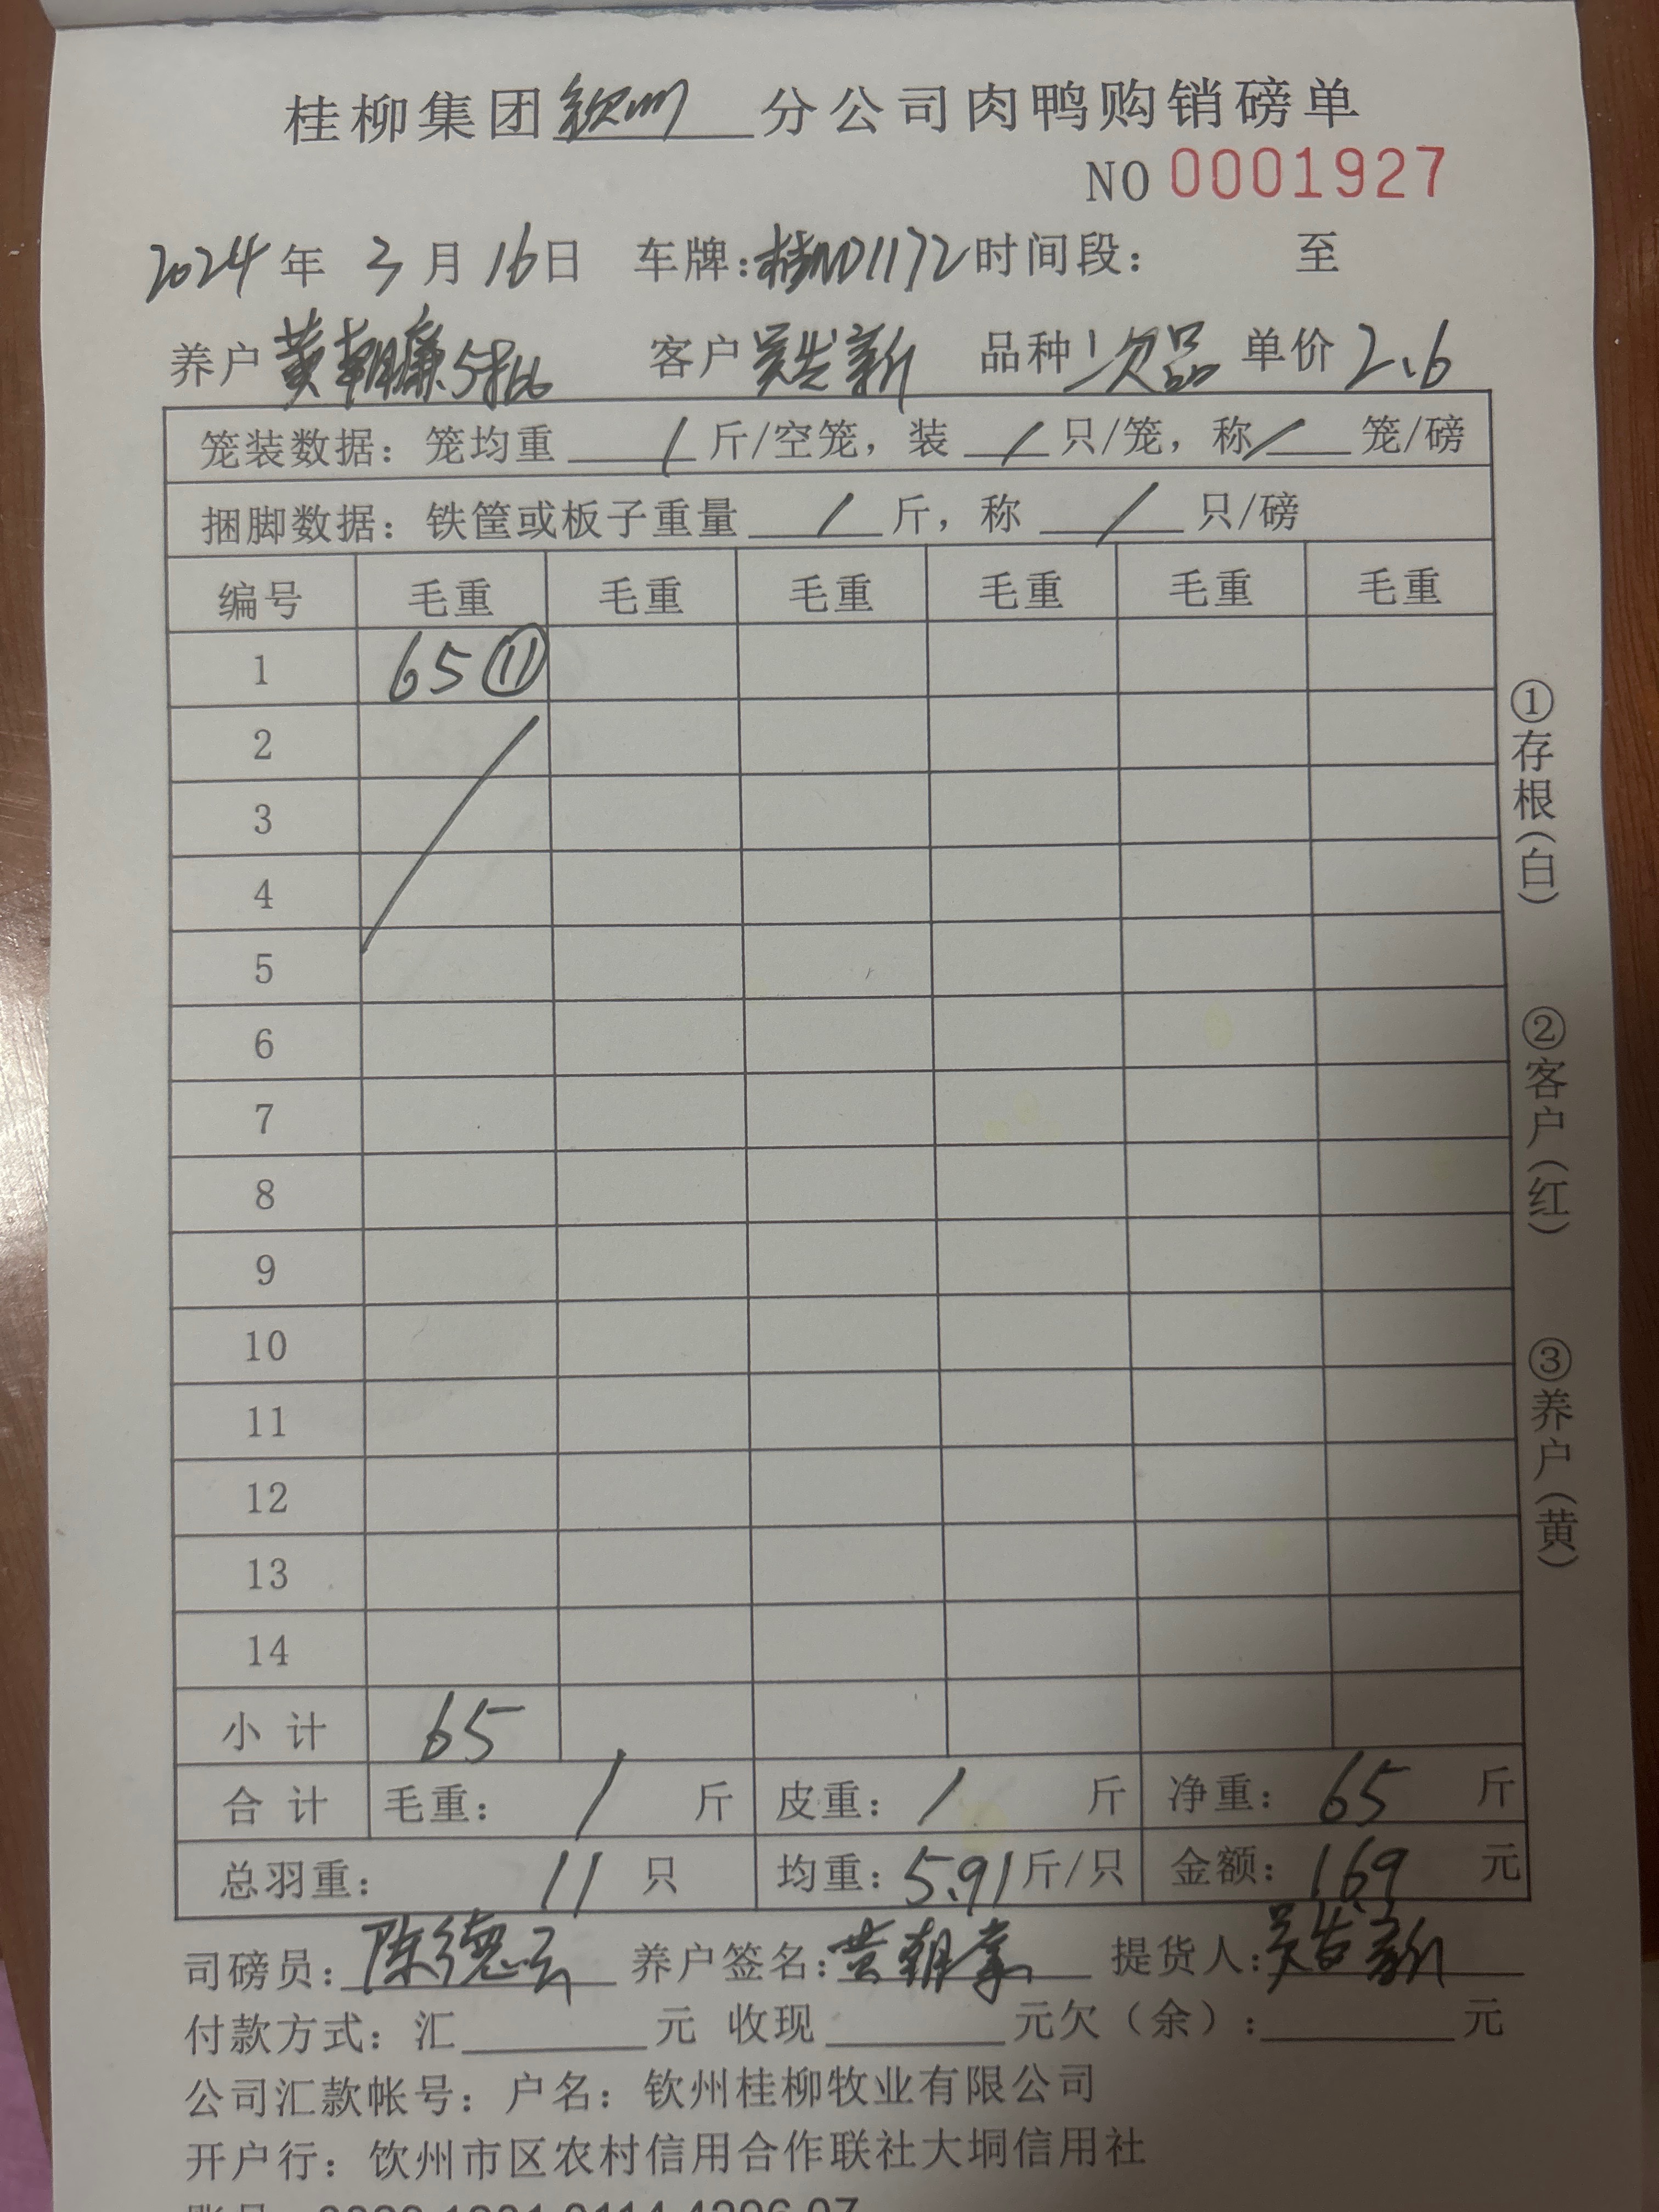 桂柳集团钦州分公司肉鸭购销磅单
NO 0001927
2024年3月16日 车牌:桂ND1172时间段: 至
养户黄朝廉5批 客户吴发新 品种次品 单价2.6
笼装数据: 笼均重/斤/空笼, 装/只/笼, 称/笼/磅
捆脚数据: 铁筐或板子重量/斤, 称/只/磅
编号 毛重 毛重 毛重 毛重 毛重 毛重
1 65⑪
2
3
4
5
6
7
8
9
10
11
12
13
14
小计 65
合计 毛重: / 斤 皮重: / 斤 净重: 65 斤
总羽重: 11 只 均重: 5.91斤/只 金额: 169 元
司磅员: 陈德云 养户签名: 黄朝 提货人: 吴发新
付款方式: 汇 元 收现 元欠（余）: 元
公司汇款帐号: 户名: 钦州桂柳牧业有限公司
开户行: 钦州市区农村信用合作联社大垌信用社
①存根(白) ②客户(红) ③养户(黄)